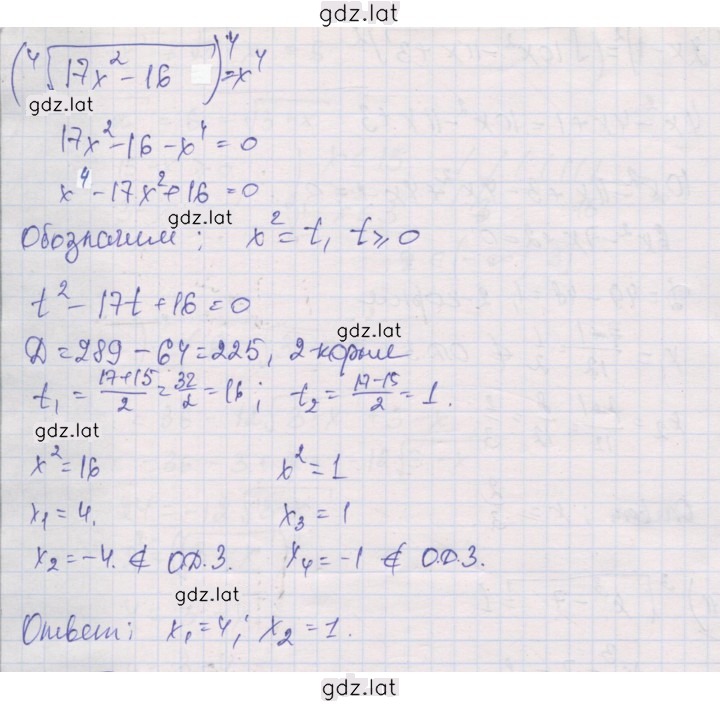 gdz.lat
(⁴√17x² - 16)⁴ = x⁴
gdz.lat
17x² - 16 - x⁴ = 0
x⁴ - 17x² + 16 = 0
gdz.lat
Обозначим: x² = t, t ⩾ 0
t² - 17t + 16 = 0
gdz.lat
Д = 289 - 64 = 225, 2 корня
t₁ = (17+15)/2 = 32/2 = 16; t₂ = (17-15)/2 = 1.
gdz.lat
x² = 16 x² = 1
x₁ = 4. x₃ = 1
x₂ = -4. ∉ О.Д.З. x₄ = -1 ∉ О.Д.З.
gdz.lat
Ответ: x₁ = 4; x₂ = 1.
gdz.lat